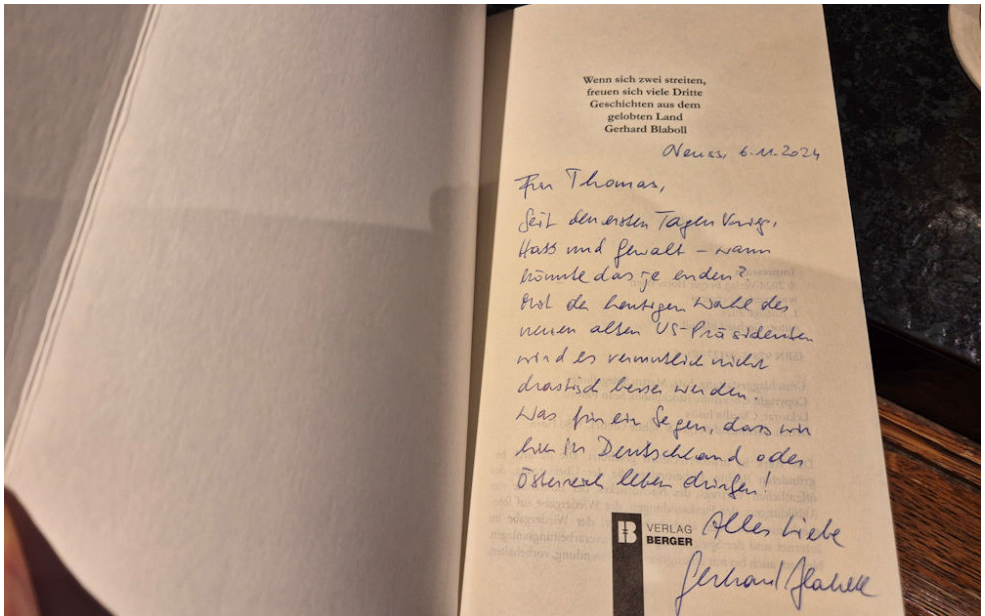 Wenn sich zwei streiten,
freuen sich viele Dritte
Geschichten aus dem
gelobten Land
Gerhard Blaboll
Neuss, 6.11.2024
Für Thomas,
Seit den ersten Tagen Krieg,
Hass und Gewalt – wann
könnte das je enden?
Mit der heutigen Wahl des
neuen alten US-Präsidenten
wird es vermutlich nicht
drastisch besser werden.
Was für ein Segen, dass wir
hier in Deutschland oder
Österreich leben dürfen!
VERLAG
BERGER
Alles Liebe
Gerhard Blaboll